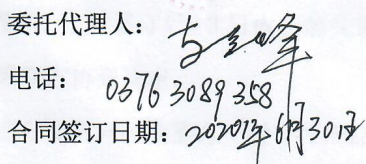 委托代理人：
电话：0376 3089 358
合同签订日期：2020年6月30日